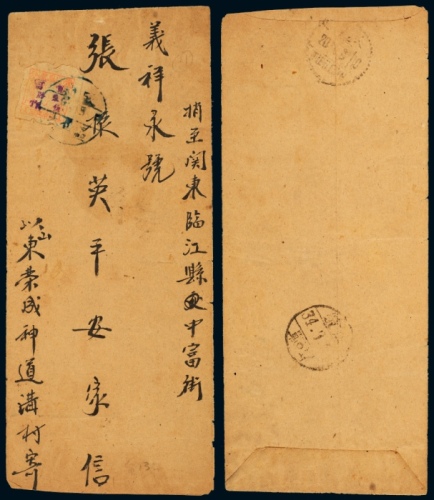 捎至関東臨江縣中富街
義祥永號
張英平安家信
山東荣成神道溝村寄
34